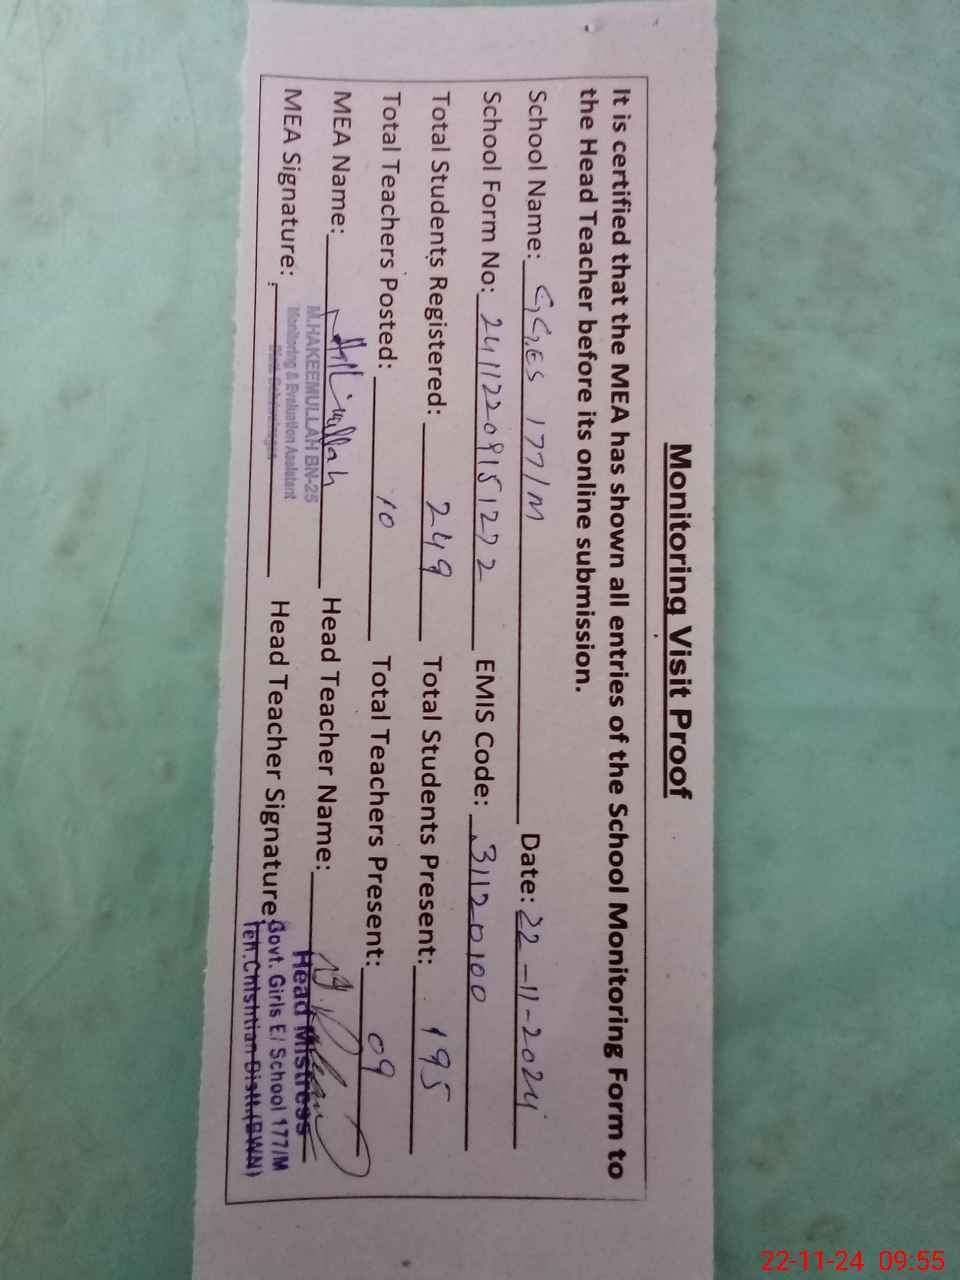 Monitoring Visit Proof
It is certified that the MEA has shown all entries of the School Monitoring Form to
the Head Teacher before its online submission.
School Name: GGES 177/M Date: 22-11-2024
School Form No: 24112209151272 EMIS Code: 31120100
Total Students Registered: 249 Total Students Present: 195
Total Teachers Posted: 10 Total Teachers Present: 09
MEA Name: Head Teacher Name:
M.HAKEEMULLAH BN-25 Head Mistress
MEA Signature: Head Teacher Signature:
Monitoring & Evaluation Assistant Govt. Girls E/ School 177/M
Distt. Bahawalnagar Teh.Chishtian Distt.(BWN)
22-11-24 09:55